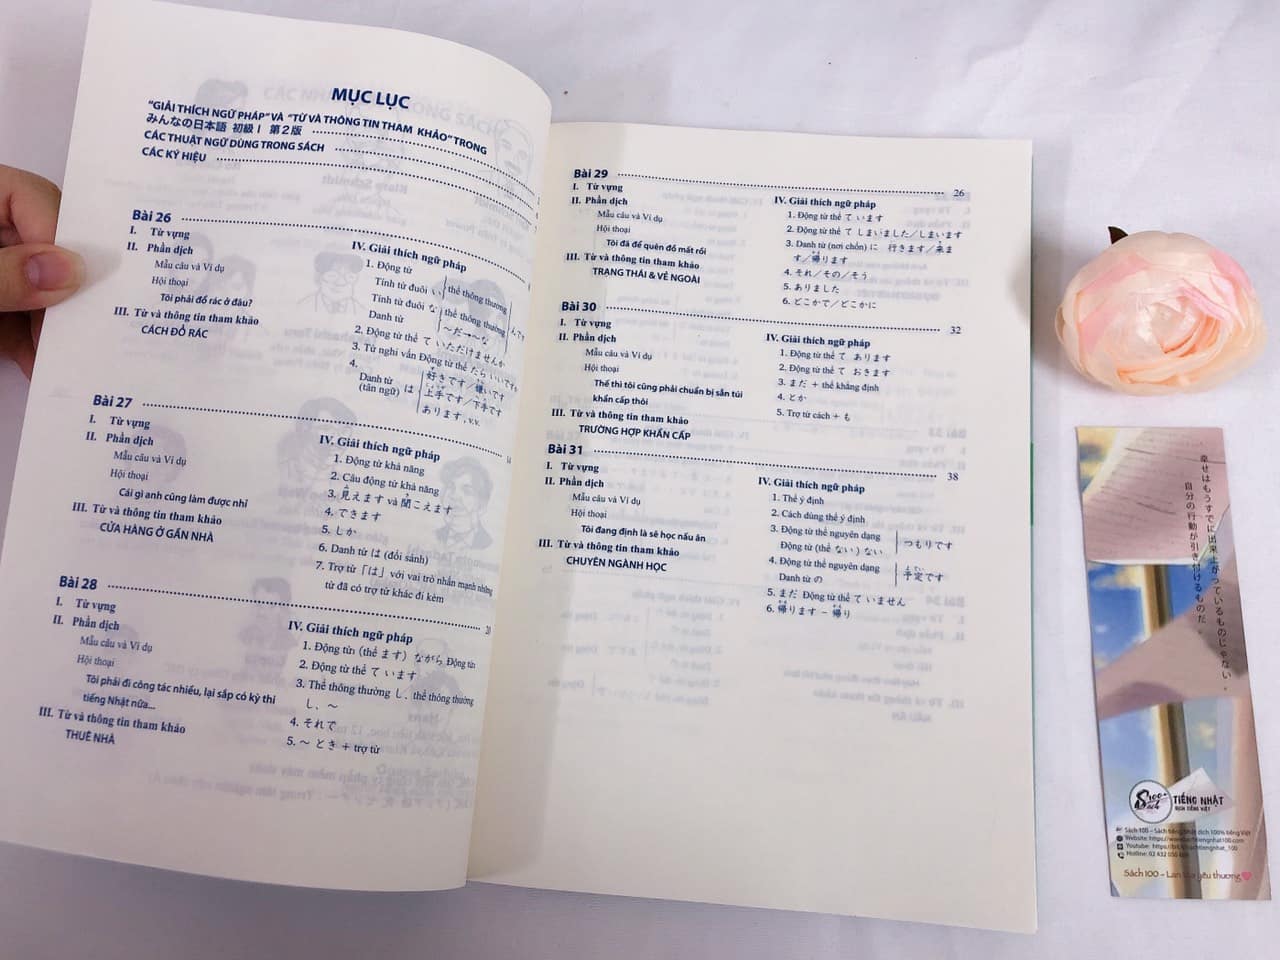 MỤC LỤC
"GIẢI THÍCH NGỮ PHÁP" VÀ "TỪ VÀ THÔNG TIN THAM KHẢO" TRONG
みんなの日本語 初級 I 第2版
CÁC THUẬT NGỮ DÙNG TRONG SÁCH
CÁC KÝ HIỆU
Bài 26
I. Từ vựng
II. Phần dịch
Mẫu câu và Ví dụ
Hội thoại
Tôi phải đổ rác ở đâu?
III. Từ và thông tin tham khảo
CÁCH ĐỔ RÁC
IV. Giải thích ngữ pháp
1. Động từ
Tính từ đuôi い thể thông thường
Tính từ đuôi な thể thông thường んです
Danh từ ～だ→～な
2. Động từ thể て いただけませんか
3. Từ nghi vấn Động từ thể たら いいですか
4.
Danh từ (tân ngữ) は 好きです／嫌いです
上手です／下手です
あります, v.v.
Bài 27 14
I. Từ vựng
II. Phần dịch
Mẫu câu và Ví dụ
Hội thoại
Cái gì anh cũng làm được nhỉ
III. Từ và thông tin tham khảo
CỬA HÀNG Ở GẦN NHÀ
IV. Giải thích ngữ pháp
1. Động từ khả năng
2. Câu động từ khả năng
3. 見えます và 聞こえます
4. できます
5. しか
6. Danh từ は (đối sánh)
7. Trợ từ「は」với vai trò nhấn mạnh những
từ đã có trợ từ khác đi kèm
Bài 28 20
I. Từ vựng
II. Phần dịch
Mẫu câu và Ví dụ
Hội thoại
Tôi phải đi công tác nhiều, lại sắp có kỳ thi
tiếng Nhật nữa...
III. Từ và thông tin tham khảo
THUÊ NHÀ
IV. Giải thích ngữ pháp
1. Động từ₁ (thể ます) ながら Động từ₂
2. Động từ thể て います
3. Thể thông thường し、thể thông thường
し、～
4. それで
5. ～ とき + trợ từ
Bài 29 26
I. Từ vựng
II. Phần dịch
Mẫu câu và Ví dụ
Hội thoại
Tôi đã để quên đồ mất rồi
III. Từ và thông tin tham khảo
TRẠNG THÁI & VẺ NGOÀI
IV. Giải thích ngữ pháp
1. Động từ thể て います
2. Động từ thể て しまいました／しまいます
3. Danh từ (nơi chốn) に 行きます／来ま
す／帰ります
4. それ／その／そう
5. ありました
6. どこかで／どこかに
Bài 30 32
I. Từ vựng
II. Phần dịch
Mẫu câu và Ví dụ
Hội thoại
Thế thì tôi cũng phải chuẩn bị sẵn túi
khẩn cấp thôi
III. Từ và thông tin tham khảo
TRƯỜNG HỢP KHẨN CẤP
IV. Giải thích ngữ pháp
1. Động từ thể て あります
2. Động từ thể て おきます
3. まだ + thể khẳng định
4. とか
5. Trợ từ cách + も
Bài 31 38
I. Từ vựng
II. Phần dịch
Mẫu câu và Ví dụ
Hội thoại
Tôi đang định là sẽ học nấu ăn
III. Từ và thông tin tham khảo
CHUYÊN NGÀNH HỌC
IV. Giải thích ngữ pháp
1. Thể ý định
2. Cách dùng thể ý định
3. Động từ thể nguyên dạng
Động từ (thể ない) ない つもりです
4. Động từ thể nguyên dạng
Danh từ の 予定です
5. まだ Động từ thể て いません
6. 帰ります – 帰り
幸せはもうすでに出来上がっているものじゃない。
自分の行動が引き付けるものだ。
Sách 100
TIẾNG NHẬT
DỊCH TIẾNG VIỆT
Sách 100 – Sách tiếng Nhật dịch 100% tiếng Việt
Hotline: 02 432 
Sách 100 – Lan tỏa yêu thương